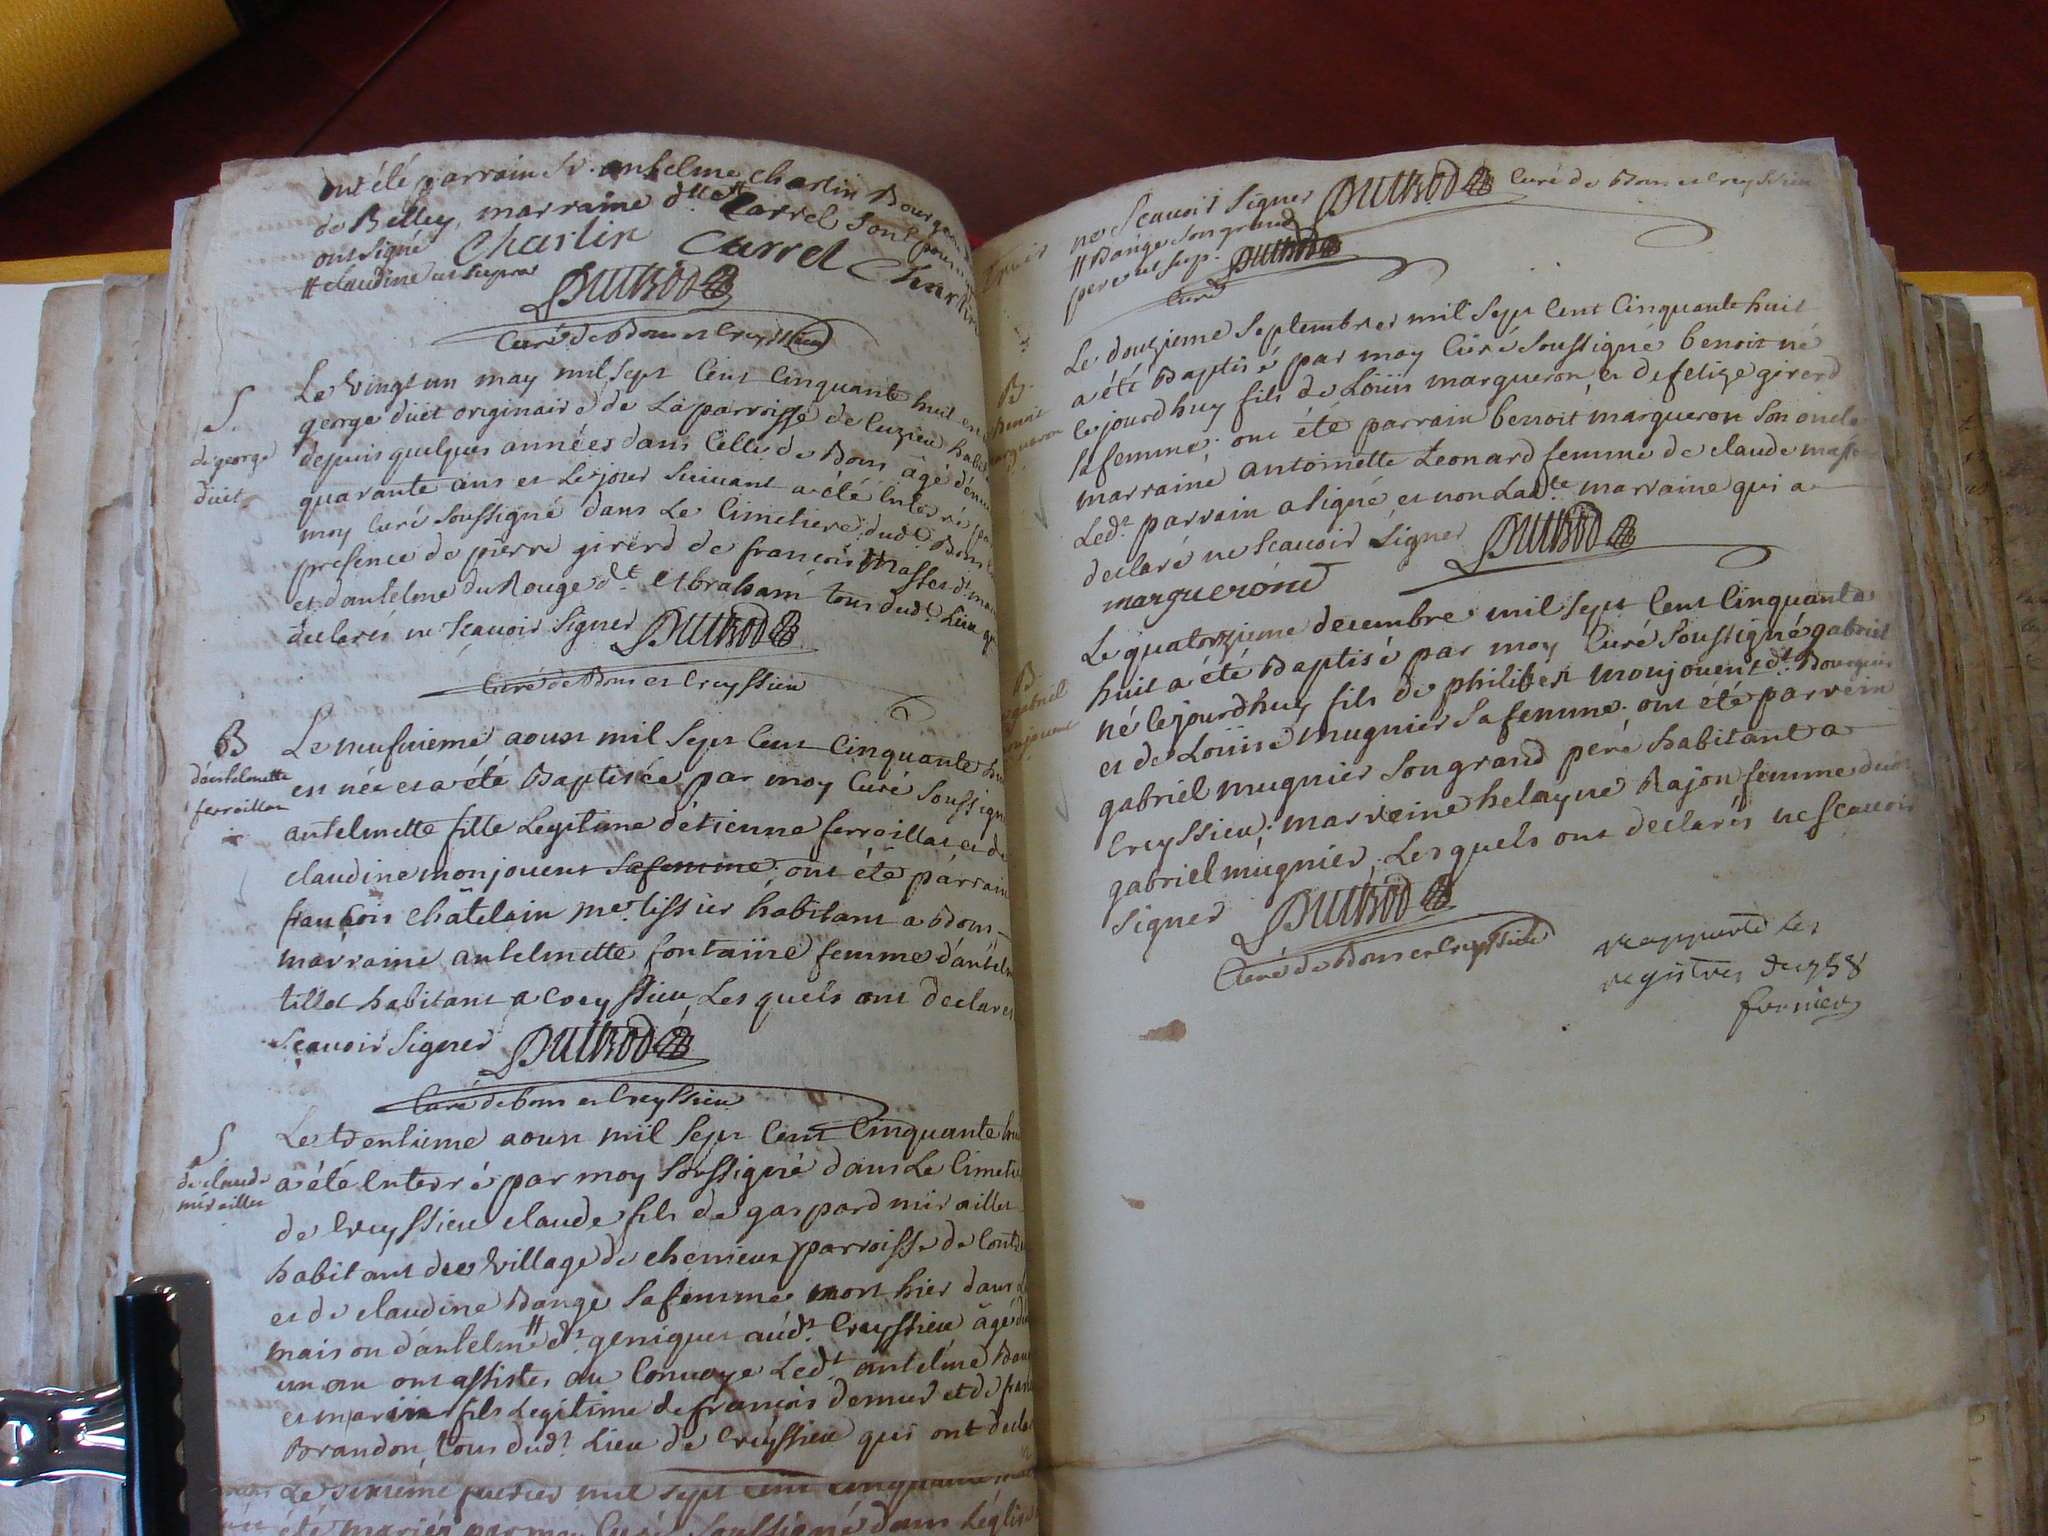 ont été parrain Sr. anthelme Charlin Bourgeois
de Belley, marraine dlle # Carrel Sont pour
ont signé Charlin Carrel Charlin
# claudine ut supra
Duthod
Curé de Bons et Creyssieu
S.
de george
duit
Le vingt un may mil Sept Cent Cinquante huit
george duit originaire de La parroisse de Cuzieu
depuis quelques années dans Celle de Bons âgé
quarante ans et Le jour Suivant a été Enterré par
moy Curé Soussigné dans Le Cimetiere dudt. Bons
presence de pierre girerd de françois
et d'antelme du Rouge dt. Abraham tous dudt. Lieu
declarés ne Scavoir Signer Duthod
Curé de Bons et Creyssieu
B
d'antelmette
ferroillat
Le neufvieme aoust mil Sept Cent Cinquante
est née et a été Baptisée par moy Curé Soussigné
antelmette fille Legitime d'etienne ferroillat et de
claudine monjouent Sa femme; ont été parrain
françois châtelain me. tissier habitant a Bons
marraine antelmette fontaine femme
tillet habitant a Creyssieu, Lesquels ont declarés
Scavoir Signer Duthod
Curé de bons et Creyssieu
S
de claude
miraillet
Le trentieme aoust mil Sept Cent Cinquante
a été Enterré par moy Soussigné dans Le Cimetiere
de Creyssieu claude fils de gaspard miraillet
habitant du village de chemieux parroisse de
et de claudine Bange Sa femme mort hier dans
maison d'antelme # dt. geniquet audt. Creyssieu âgé
un an ont assistés au Convoye Ledt. antelme
et marin fils Legitime de françois demur et de
Brandon, tous dudt. Lieu de Creyssieu qui ont
Le Sixieme fevrier mil Sept Cent Cinquante
été mariés par moy Curé Soussigné dans L'église
ne Scavoir Signer Duthod Curé de Bons et Creyssieu
# Bange Son grand
pere ut Sup. Duthod
Curé
B.
benoit
margueron
Le douzieme Septembre mil Sept Cent Cinquante huit
a été Baptisé par moy Curé Soussigné benoit né
Cejourdhuy fils de Loüis margueron et de felize girerd
Sa femme; ont été parrain benoit margueron Son oncle
marraine antoinette Leonard femme de claude
Ledt. parrain a Signé et non Ladte. marraine qui a
declaré ne Scavoir Signer Duthod
margueróned
B
gabriel
monjouent
Le quatorzieme decembre mil Sept Cent Cinquante
huit a été Baptisé par moy Curé Soussigné gabriel
né Cejourdhuy fils de philibert monjouent dt. Bourguin
et de Loüise mugnier Sa femme; ont été parrein
gabriel mugnier Son grand pere habitant a
Creyssieu; marreine helayne Rajon femme dudt.
gabriel mugnier, Lesquels ont declarés ne Scavoir
Signer Duthod
Curé de Bons et Creyssieu
rapporté les
registres de 1758
fornier